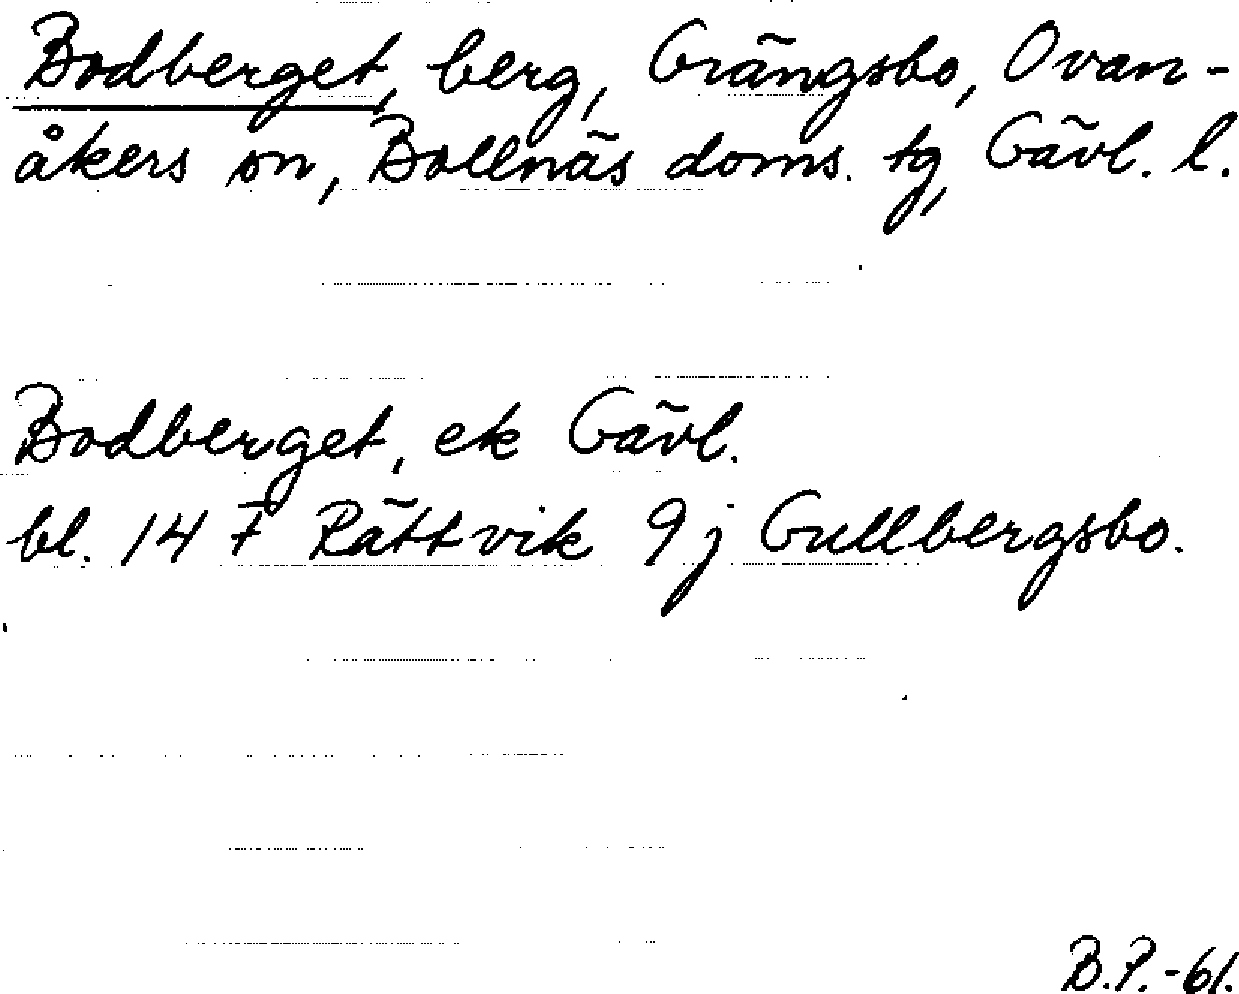 Bodberget, berg, Grängsbo, Ovan-
åkers sn, Bollnäs doms. tg, Gävl. l.
Bodberget, ek Gävl.
bl. 14 F Rättvik 9 j Gullbergsbo.
B.P.-61.